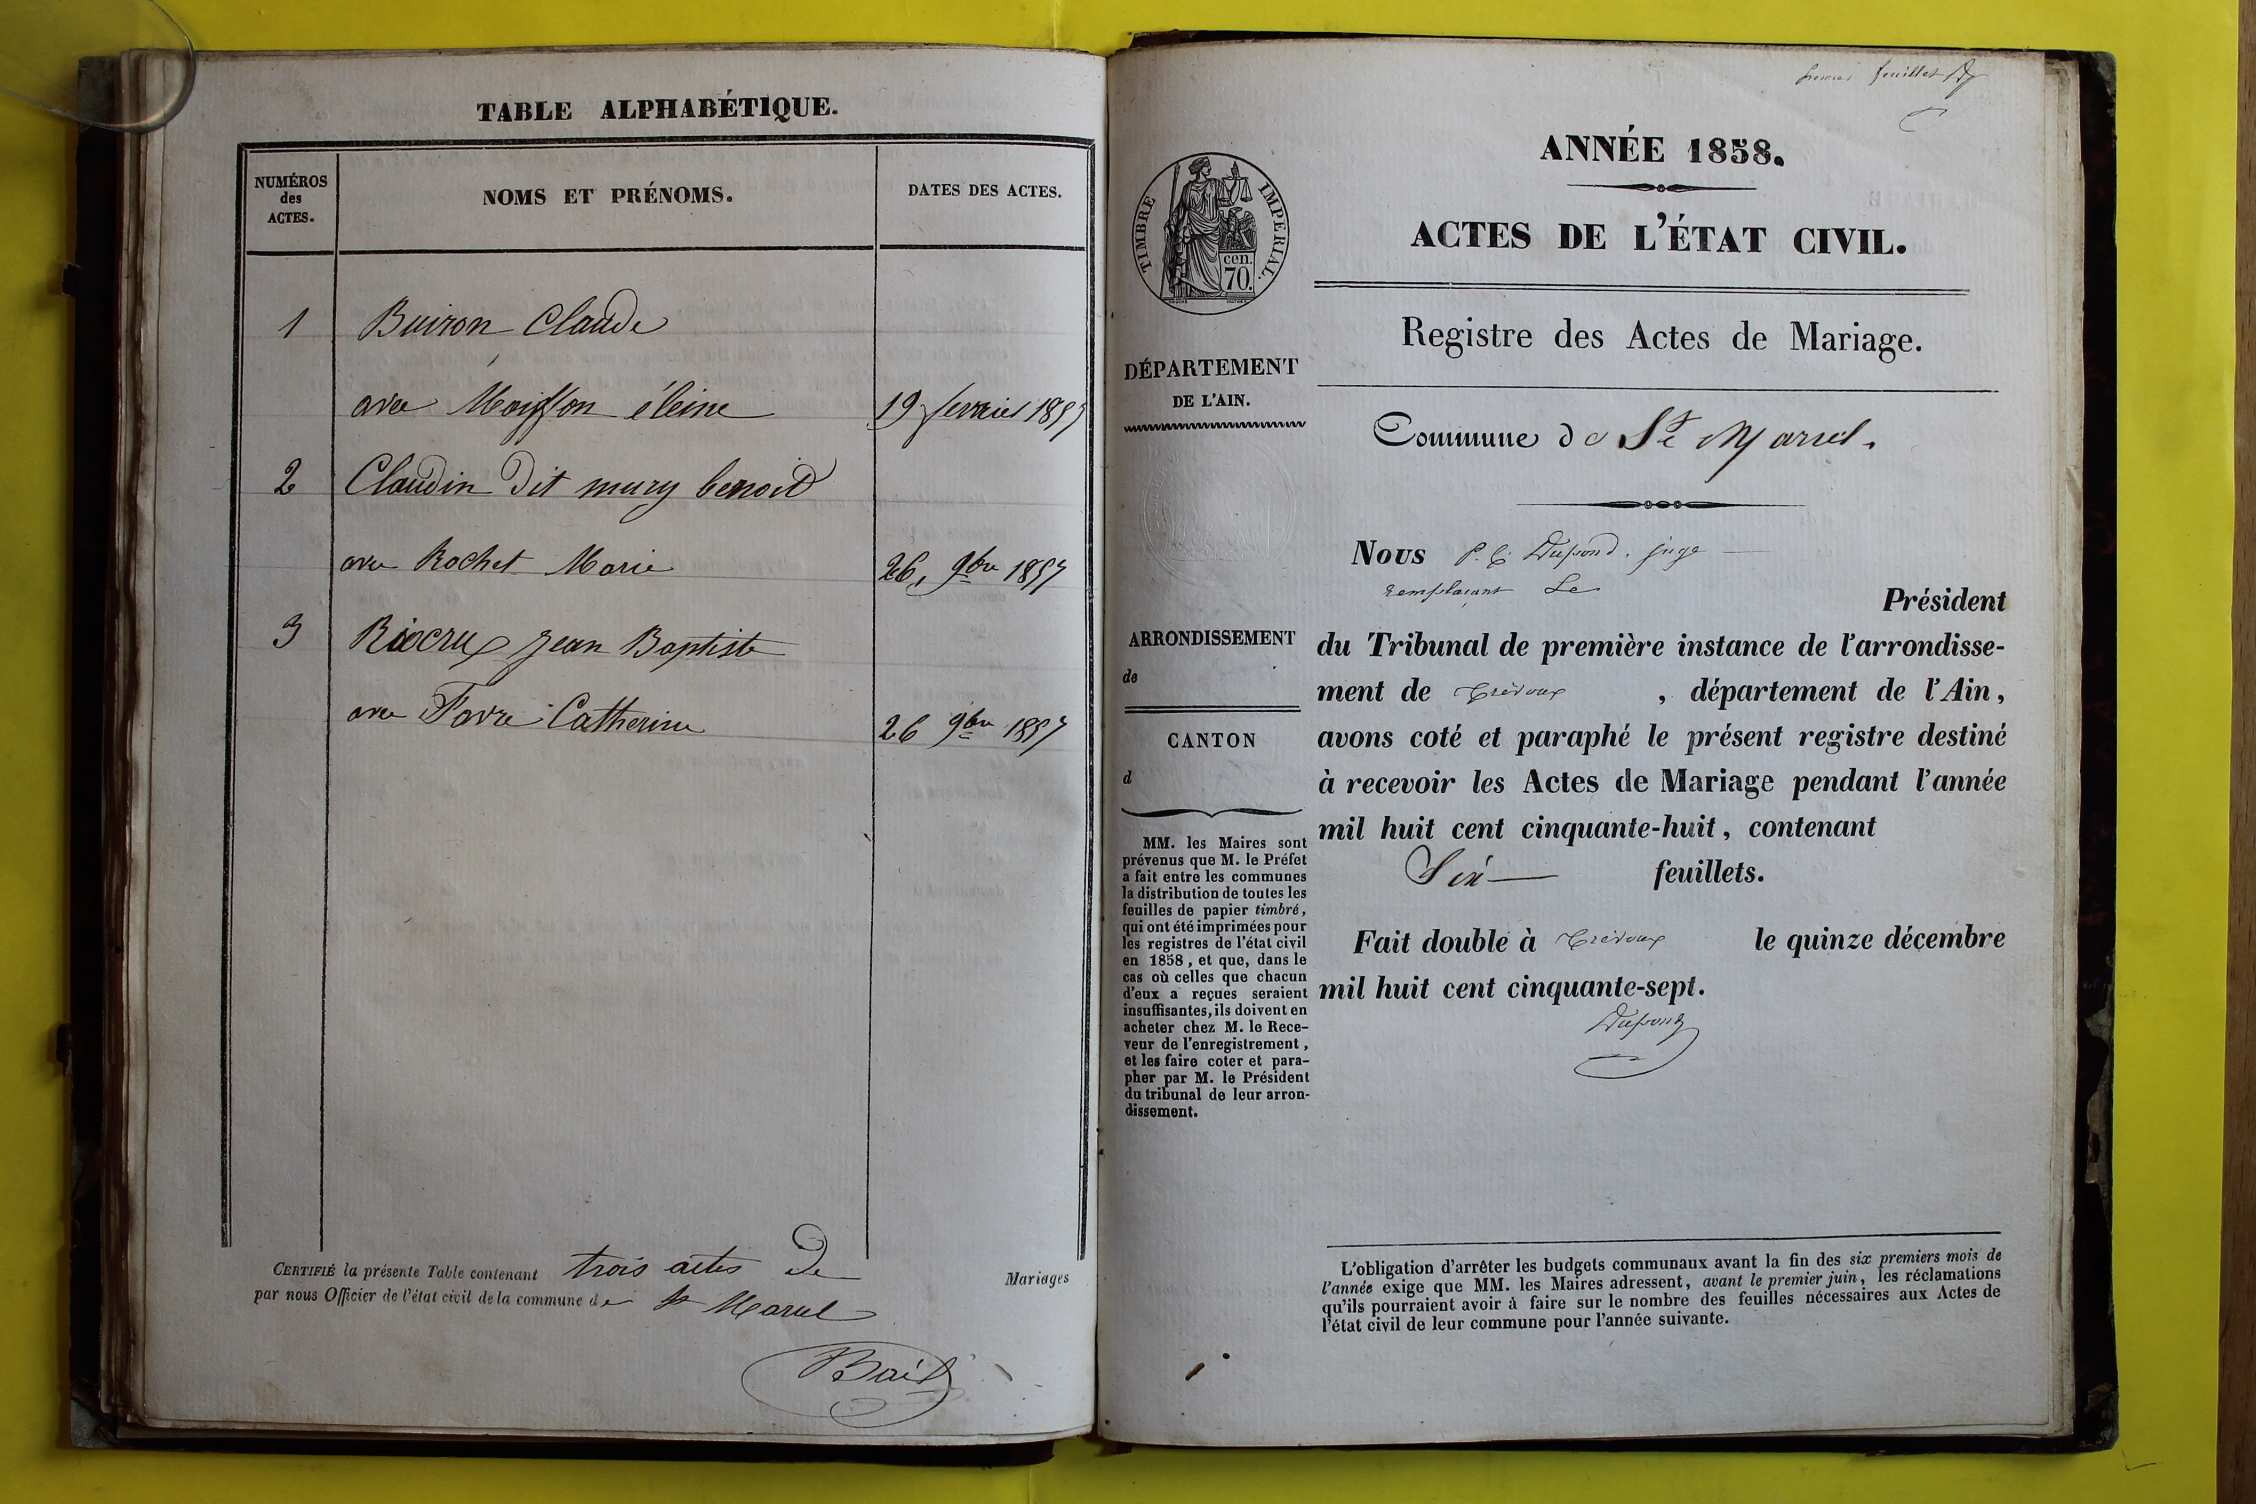 TABLE ALPHABÉTIQUE.
NUMÉROS
des
ACTES.
NOMS ET PRÉNOMS.
DATES DES ACTES.
1 Buiron Claude
avec Moisson éleine 19 fevrier 1857
2 Claudin dit mury benoit
avec Rochet Marie 26, 9bre 1857
3 Riocrux Jean Baptiste
avec Favre Catherine 26 9bre 1857
CERTIFIÉ la présente Table contenant trois actes de Mariages
par nous Officier de l'état civil de la commune de St Marcel
feuillet
ANNÉE 1858.
ACTES DE L'ÉTAT CIVIL.
Registre des Actes de Mariage.
TIMBRE IMPÉRIAL.
cen.
70.
DÉPARTEMENT
DE L'AIN.
ARRONDISSEMENT
de
CANTON
d
MM. les Maires sont
prévenus que M. le Préfet
a fait entre les communes
la distribution de toutes les
feuilles de papier timbré,
qui ont été imprimées pour
les registres de l'état civil
en 1858, et que, dans le
cas où celles que chacun
d'eux a reçues seraient
insuffisantes, ils doivent en
acheter chez M. le Rece-
veur de l'enregistrement,
et les faire coter et para-
pher par M. le Président
du tribunal de leur arron-
dissement.
Commune de St Marcel.
Nous P. C. Dupond, juge
remplaçant Le
Président
du Tribunal de première instance de l'arrondisse-
ment de Trévoux, département de l'Ain,
avons coté et paraphé le présent registre destiné
à recevoir les Actes de Mariage pendant l'année
mil huit cent cinquante-huit, contenant
Six feuillets.
Fait double à Trévoux le quinze décembre
mil huit cent cinquante-sept.
Dupond
L'obligation d'arrêter les budgets communaux avant la fin des six premiers mois de
l'année exige que MM. les Maires adressent, avant le premier juin, les réclamations
qu'ils pourraient avoir à faire sur le nombre des feuilles nécessaires aux Actes de
l'état civil de leur commune pour l'année suivante.